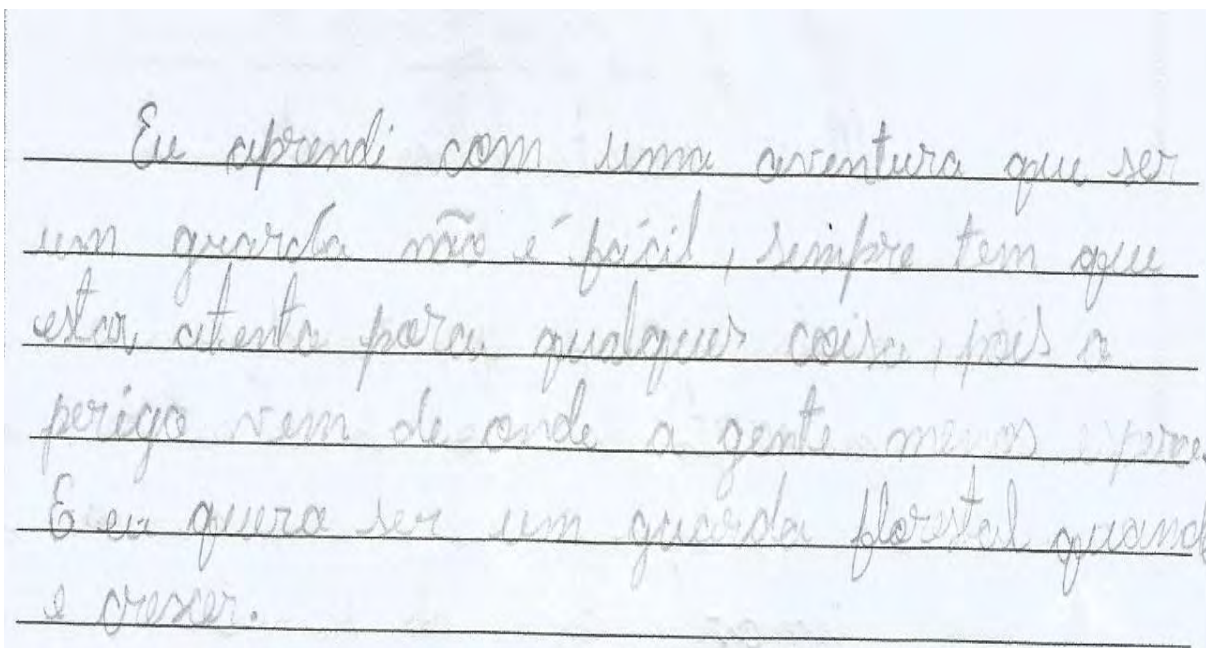 Eu aprendi com uma aventura que ser
um guarda não é fácil, sempre tem que
estar atento para qualquer coisa, pois o
perigo vem de onde a gente menos espera.
E eu quero ser um guarda florestal quando
e crescer.